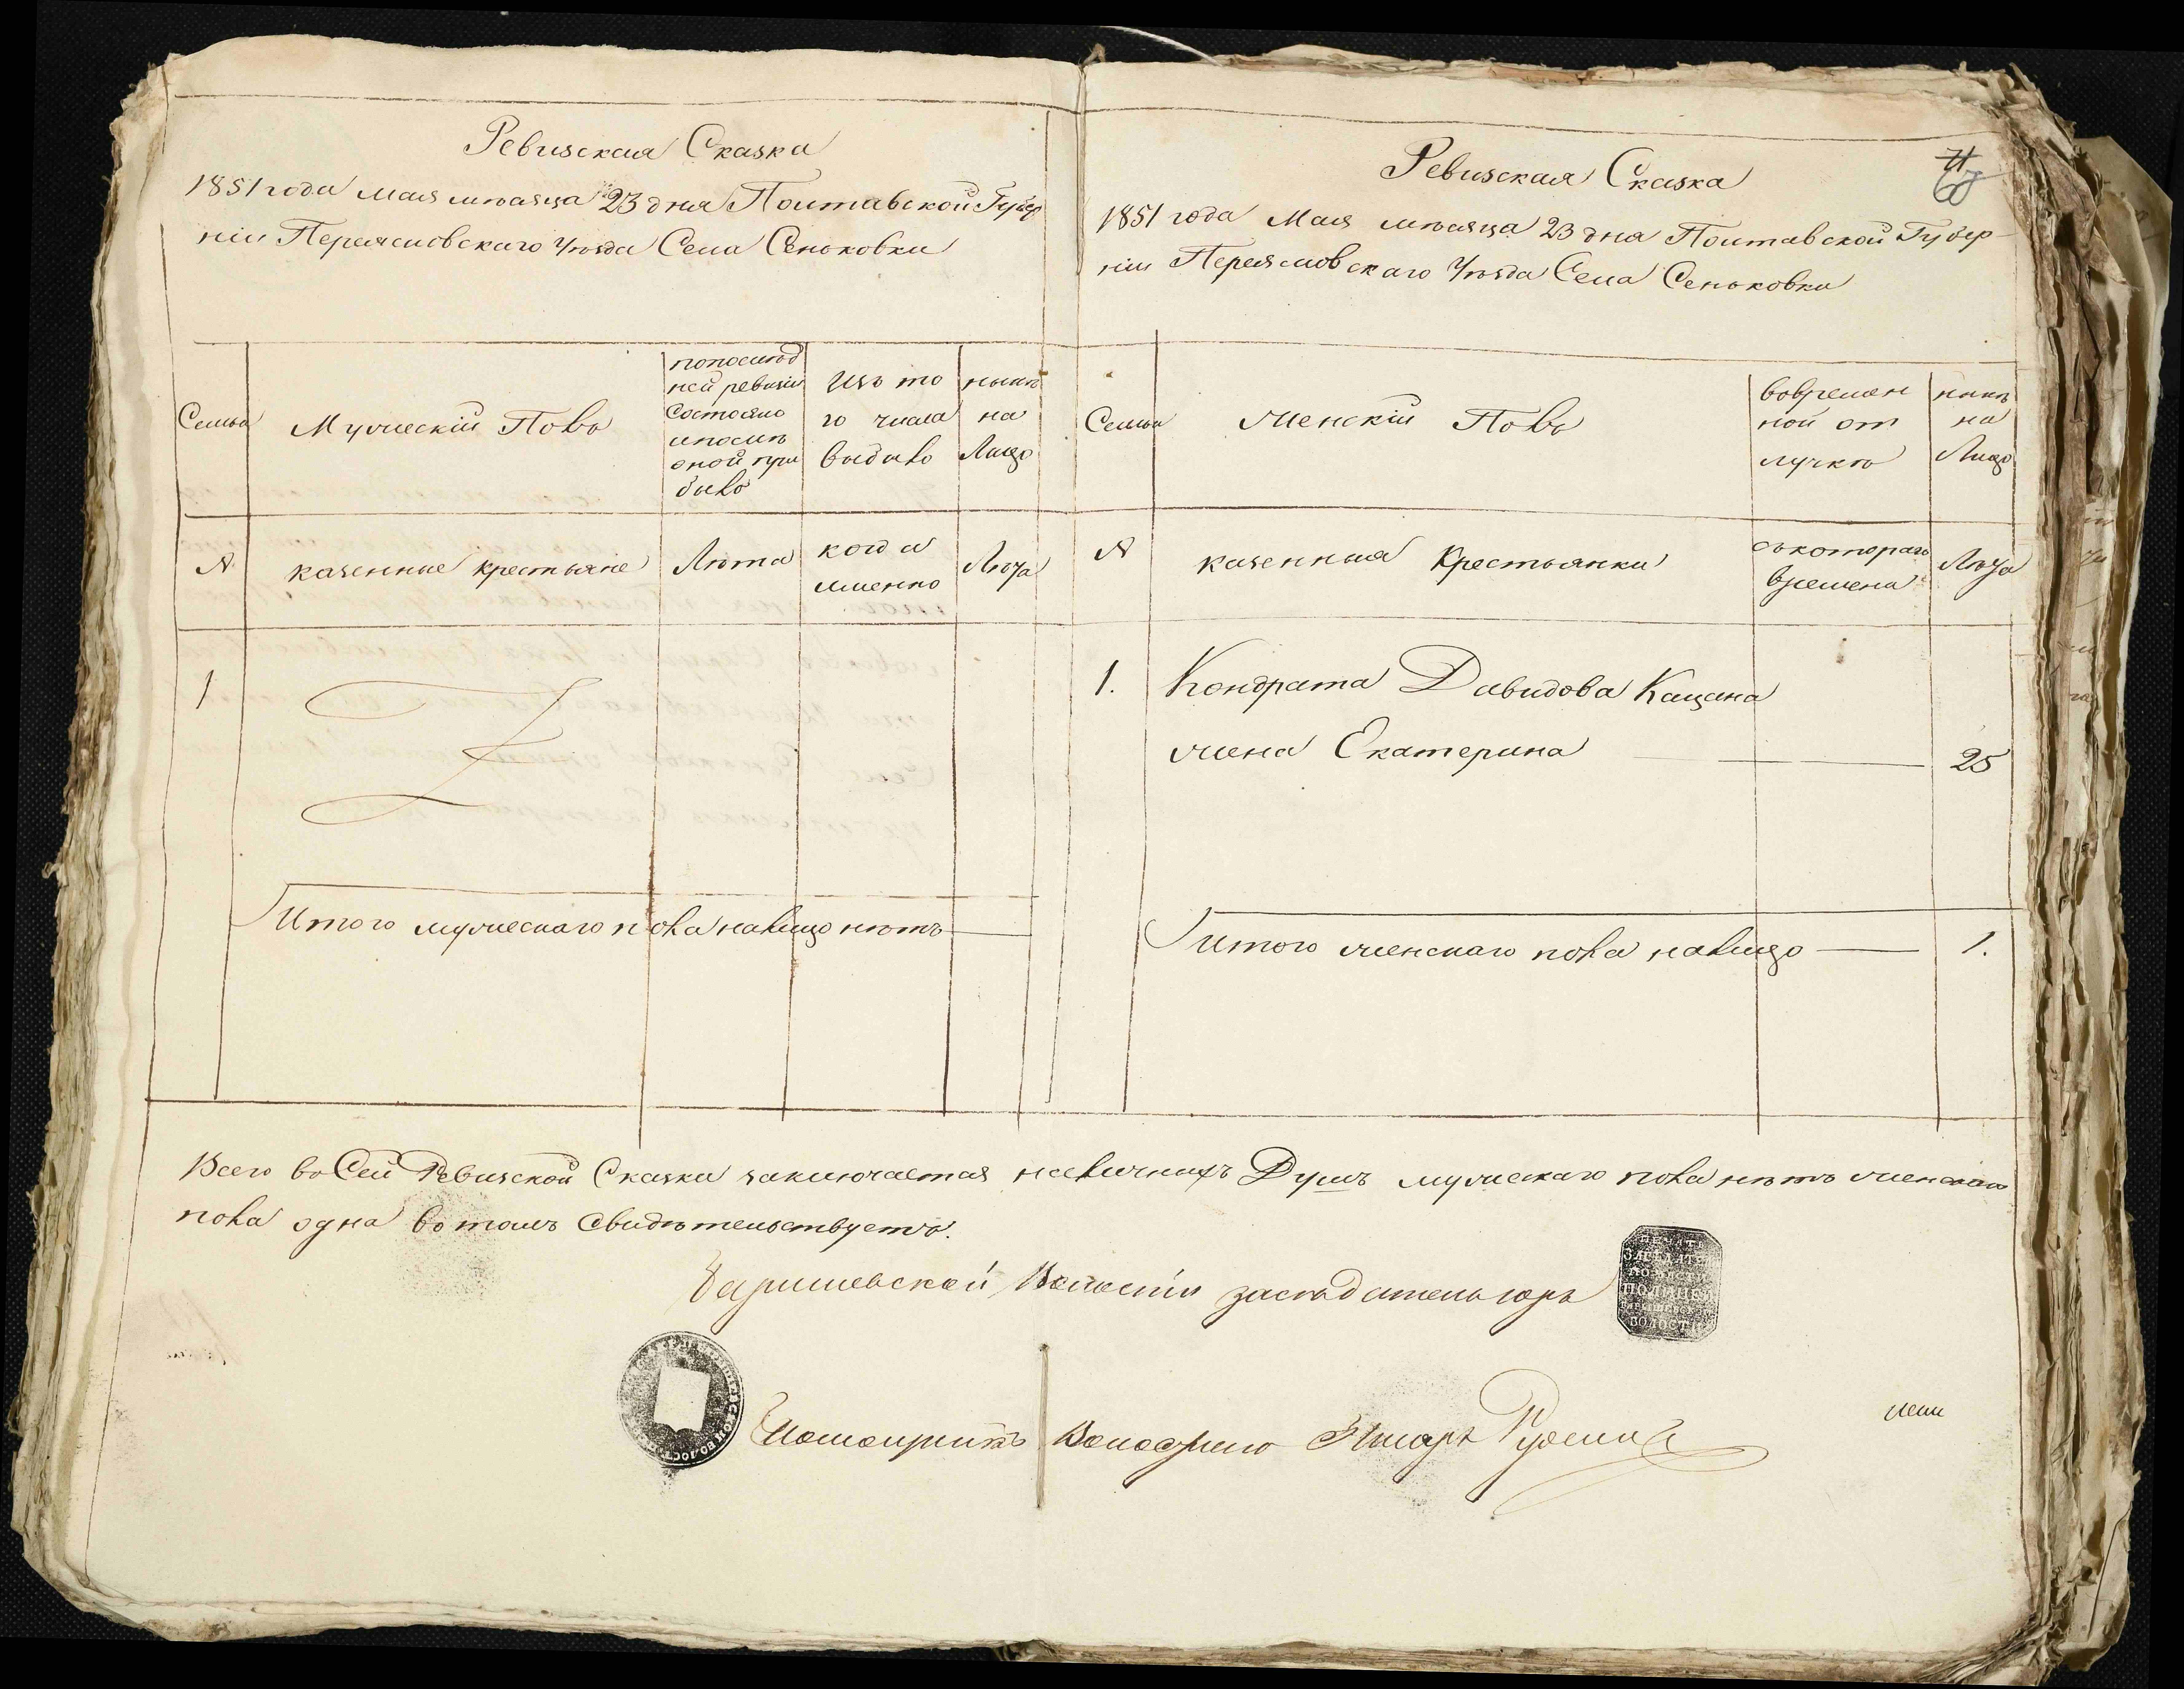 Ревизская Сказка
1851 года Мая мѣсяца 23 дня Полтавской Губер
ніи Переясловскаго Уѣзда Села Сеньковки
Семьи
Мужескій Полъ
попослѣд
ней ревизіи
Состояло
ипослѣ
оной при
было
Изъ то
го числа
выбыло
нынѣ
на
Лицо
№
казенные крестьяне
Лѣта
когда
имянно
Лѣта
1
Итого мужескаго пола налицо нѣтъ
Ревизская Сказка
71
68
1851 года Мая мѣсяца 23 дня Полтавской Губер
ніи Переясловскаго Уѣзда Села Сеньковки
Семьи
Женскій Полъ
вовремен
ной от
лучкѣ
нынѣ
на
Лицо
№
казенныя Крестьянки
съкотораго
времена
Лѣта
1. Кондрата Давидова Кацана
жена Екатерина 25
Итого женскаго пола налицо 1.
Всего воСей Ревизской Сказки заключается наличныхъ Душъ мужескаго пола нѣтъ женскаго
пола одна вотомъ Свидѣтельствуетъ.
Барышевской Волости засѣдатель
ПЕЧАТЬ
ПОЛИЦЕЙ
ВОЛОСТ
Волостной Писарь